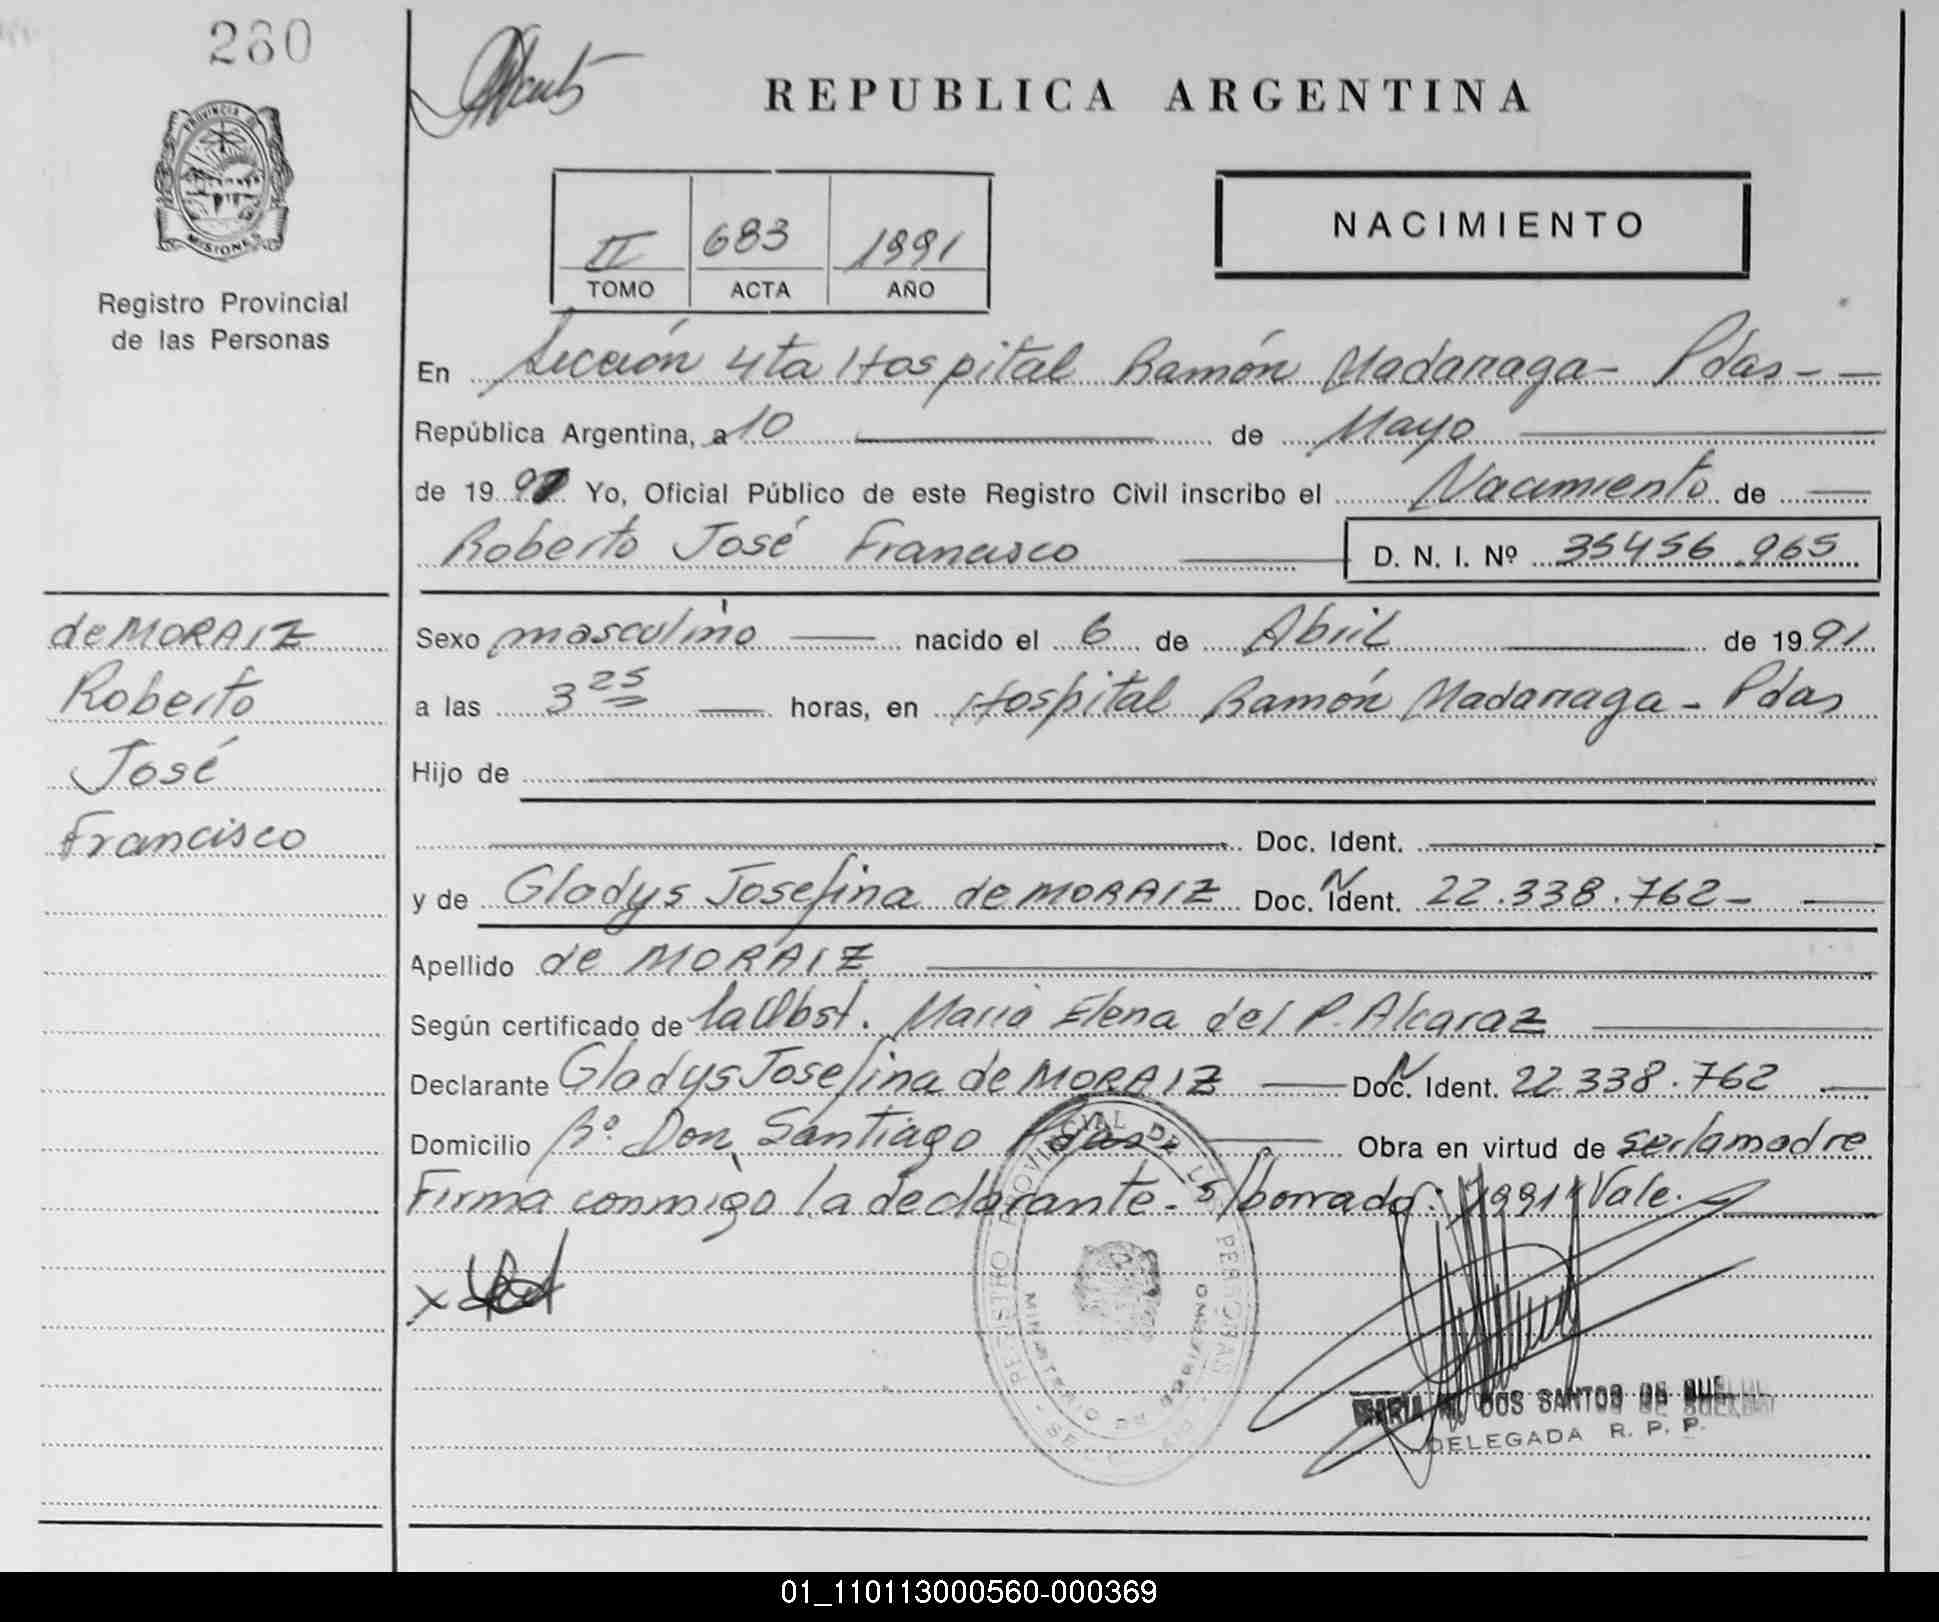 260
PROVINCIA DE
MISIONES
Registro Provincial
de las Personas
REPUBLICA ARGENTINA
II 683 1991
TOMO ACTA AÑO
NACIMIENTO
En Sección 4ta Hospital Ramón Madariaga - Pdas - -
República Argentina, a 10 de Mayo
de 1991 Yo, Oficial Público de este Registro Civil inscribo el Nacimiento de
Roberto José Francisco D. N. I. Nº 35456.965
de MORAIZ
Roberto
José
Francisco
Sexo masculino nacido el 6 de Abril de 1991
a las 3 25 horas, en Hospital Ramón Madariaga - Pdas
Hijo de
Doc. Ident.
y de Gladys Josefina de MORAIZ Doc. N Ident. 22.338.762-
Apellido de MORAIZ
Según certificado de la Obst. Maria Elena del P. Alcaraz
Declarante Gladys Josefina de MORAIZ Doc. N Ident. 22.338.762
Domicilio Bº. Don Santiago Pdas. Obra en virtud de ser la madre
Firma conmigo la declarante. S/borrado: "1991" Vale.
x
REGISTRO PROVINCIAL DE LAS PERSONAS
MINISTERIO DE GOBIERNO
MARIA DOS SANTOS DE
DELEGADA R. P. P.
01_110113000560-000369